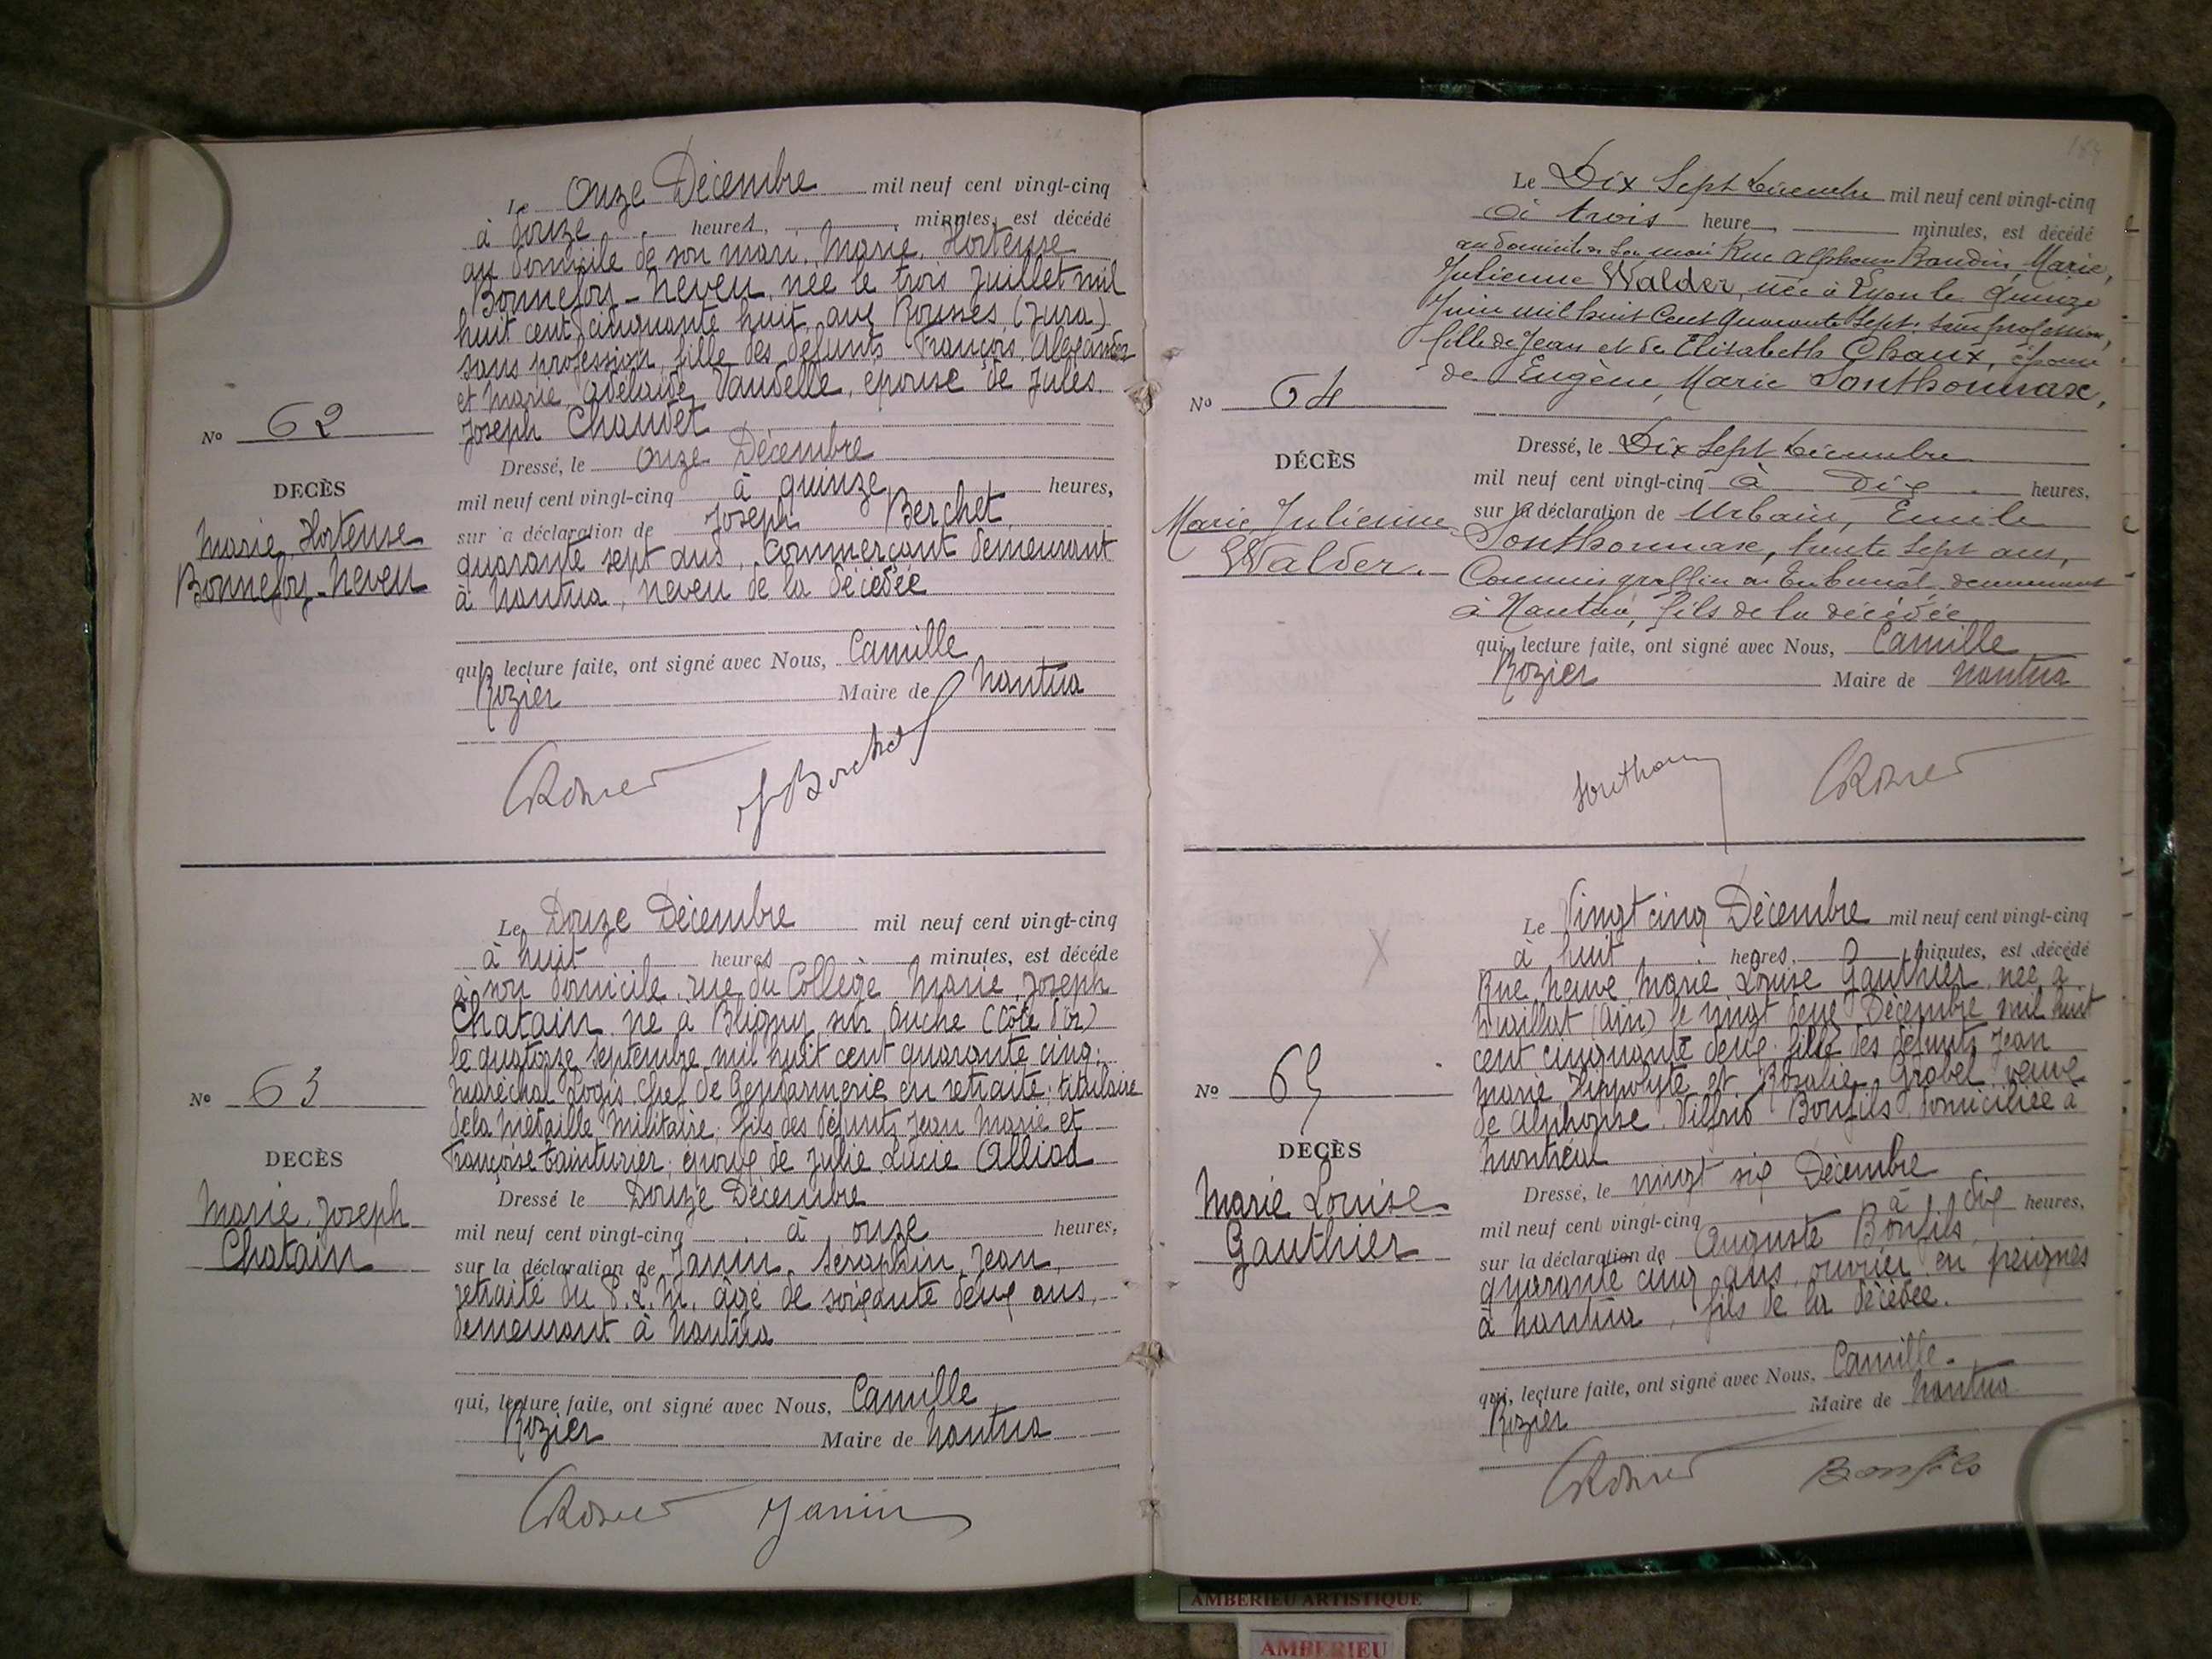 Le Onze Décembre mil neuf cent vingt-cinq
à douze heures, minutes, est décédé
au domicile de son mari, Marie, Hortense
Bonnefoy-Neveu, née le trois Juillet mil
huit cent cinquante huit, aux Rousses (Jura)
sans profession, fille des défunts François, Alexandre
et Marie, Adélaïde, Vandelle, épouse de Jules
Joseph Chaudet
No 62
DECÈS
Marie, Hortense
Bonnefoy-Neveu
Dressé, le Onze Décembre
mil neuf cent vingt-cinq à quinze heures,
sur la déclaration de Joseph Berchet,
quarante sept ans, commerçant demeurant
à Nantua, neveu de la décédée
qui, lecture faite, ont signé avec Nous, Camille
Rozier Maire de Nantua
CRozier J Berchet
Le Douze Décembre mil neuf cent vingt-cinq
à huit heures minutes, est décédé
à son domicile, rue du Collège Marie, Joseph
Chatain né à Bligny sur Ouche (Côte d'Or)
le quatorze Septembre mil huit cent quarante cinq,
Maréchal Logis Chef de Gendarmerie en retraite, titulaire
de la Médaille Militaire, fils des défunts Jean Marie et
Françoise Tainturier, époux de Julie Lucie Alliod
No 63
DECÈS
Marie, Joseph
Chatain
Dressé le Douze Décembre
mil neuf cent vingt-cinq à onze heures,
sur la déclaration de Janin, Séraphin, Jean,
retraité du P.L.M. âgé de soixante deux ans,
demeurant à Nantua
qui, lecture faite, ont signé avec Nous, Camille
Rozier Maire de Nantua
CRozier Janin
Le Dix Sept Décembre mil neuf cent vingt-cinq
à trois heure minutes, est décédé
au domicile de son mari Rue Alphonse Baudin, Marie,
Julienne Walder, née à Lyon le quinze
Juin mil huit cent quarante sept, sans profession,
fille de Jean et de Elisabeth Chaux, épouse
de Eugène, Marie Sonthonnax,
No 64
DÉCÈS
Marie Julienne
Walder.
Dressé, le Dix Sept Décembre
mil neuf cent vingt-cinq à Dix heures,
sur la déclaration de Urbain, Emile
Sonthonnax, trente sept ans,
Commis greffier au Tribunal, demeurant
à Nantua, fils de la décédée
qui, lecture faite, ont signé avec Nous, Camille
Rozier Maire de Nantua
Southon CRozier
Le Vingt cinq Décembre mil neuf cent vingt-cinq
à huit heures, minutes, est décédé
Rue Neuve, Marie Louise Gauthier, née à
(Ain) le vingt deux Décembre mil huit
cent cinquante deux, fille des défunts Jean
Marie, Hippolyte et Rosalie Grobel, veuve
de Alphonse, Vilfrid Bonfils, domiciliée à
Montréal
No 65
DECÈS
Marie Louise
Gauthier
Dressé, le vingt six Décembre
mil neuf cent vingt-cinq à dix heures,
sur la déclaration de Auguste Bonfils,
quarante cinq ans, ouvrier en peignes
à Nantua, fils de la décédée.
qui, lecture faite, ont signé avec Nous, Camille
Rozier Maire de Nantua
CRozier Bonfils
AMBERIEU ARTISTIQUE
AMBERIEU